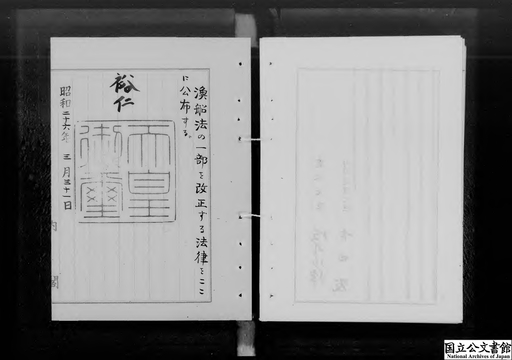 漁船法の一部を改正する法律をここ
に公布する。
裕仁
天皇
御璽
昭和二十六年 三月三十一日
内閣
国立公文書館
National Archives of Japan